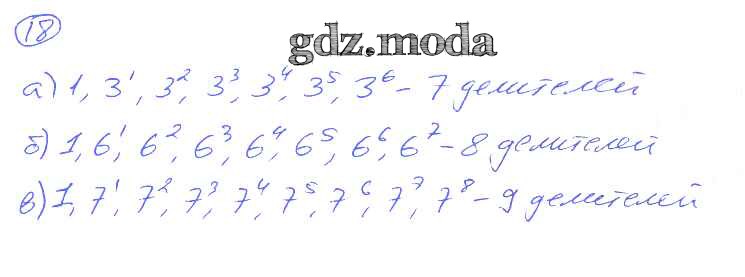 18
gdz.moda
а) 1, 3¹, 3², 3³, 3⁴, 3⁵, 3⁶ – 7 делителей
б) 1, 6¹, 6², 6³, 6⁴, 6⁵, 6⁶, 6⁷ – 8 делителей
в) 1, 7¹, 7², 7³, 7⁴, 7⁵, 7⁶, 7⁷, 7⁸ – 9 делителей